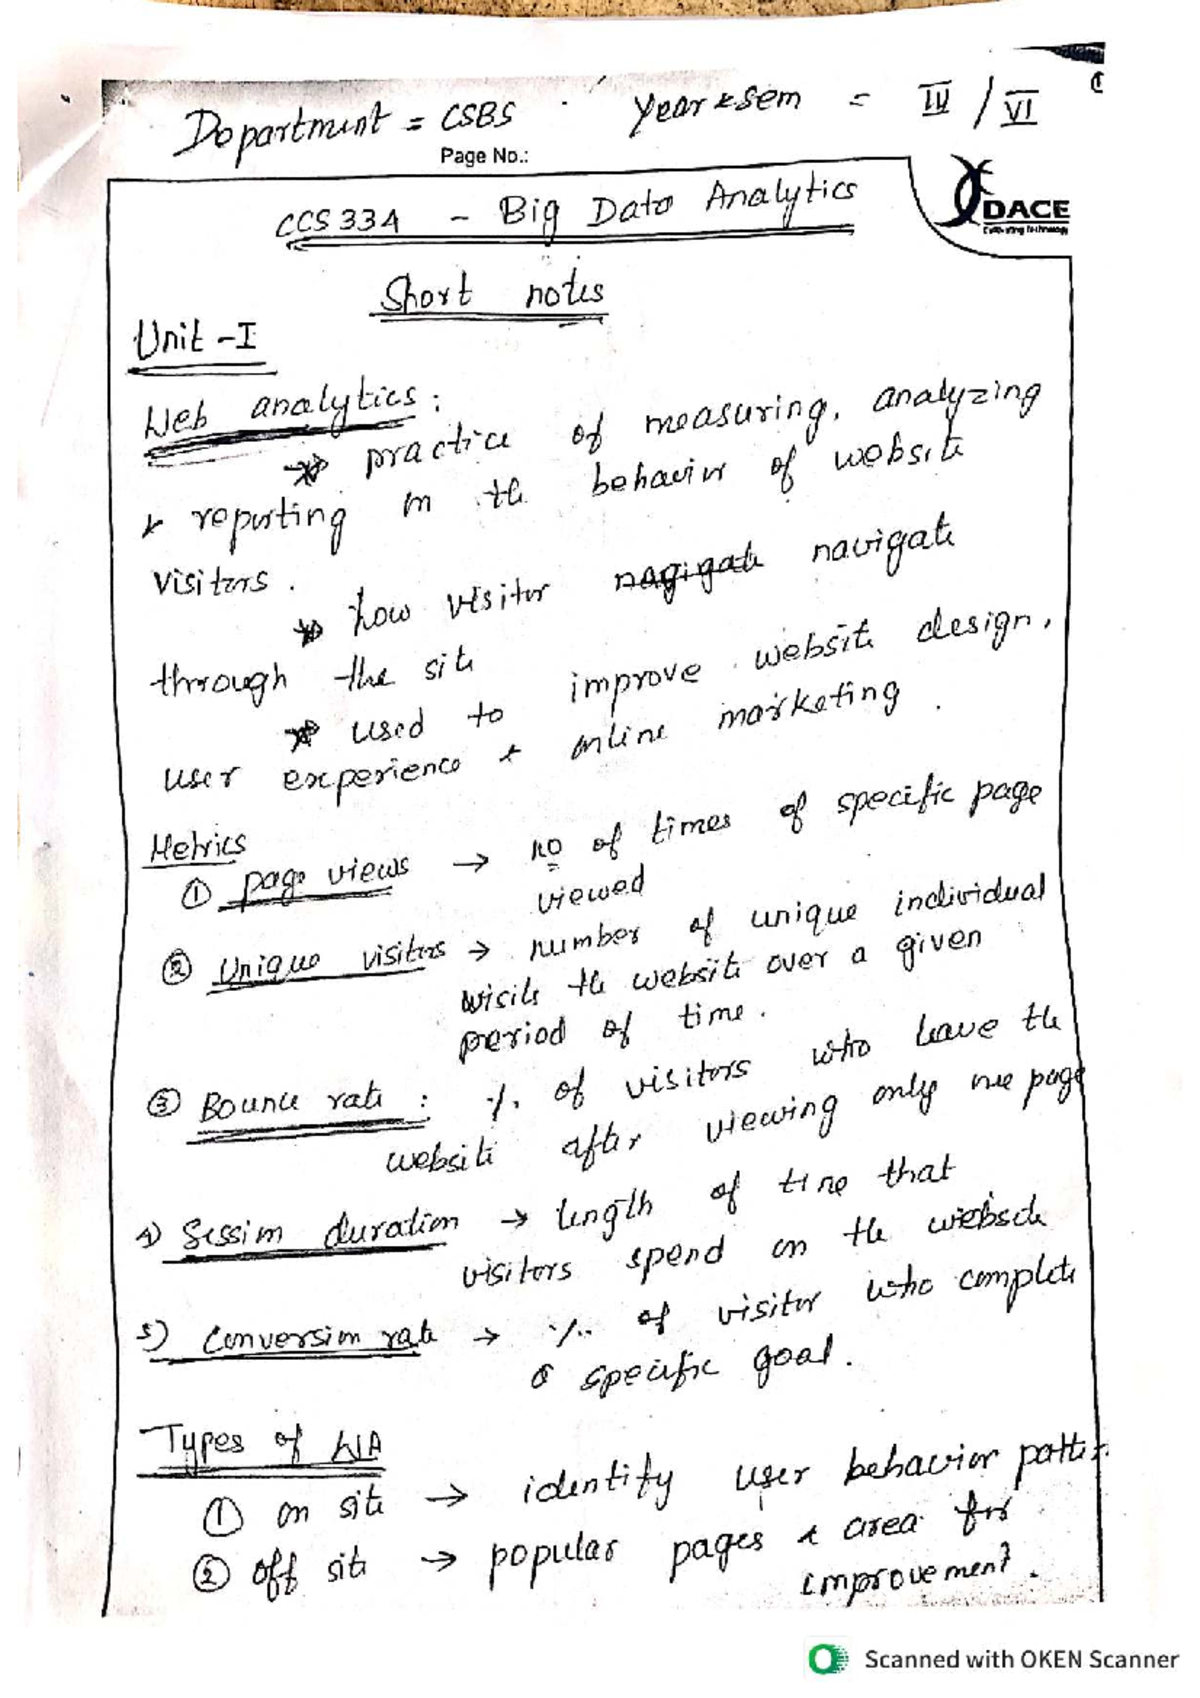 Department = CSBS Year & Sem = III / VI
Page No.:
DACE
Cultivating Technology
CCS334 - Big Data Analytics
Short notes
Unit - I
Web analytics :
* practice of measuring, analyzing
& reporting on the behavior of website
visitors.
* how visitor nagigate navigate
through the site
* used to improve website design,
user experience & online marketing.
Metrics
① page views → no of times of specific page
viewed
② Unique visitors → number of unique individual
visits the website over a given
period of time.
③ Bounce rate : % of visitors who leave the
website after viewing only one page
4) Session duration → length of time that
visitors spend on the website
5) Conversion rate → % of visitor who complete
a specific goal.
Types of WA
① on site → identify user behavior
② off site → popular pages & area for
improvement.
Scanned with OKEN Scanner